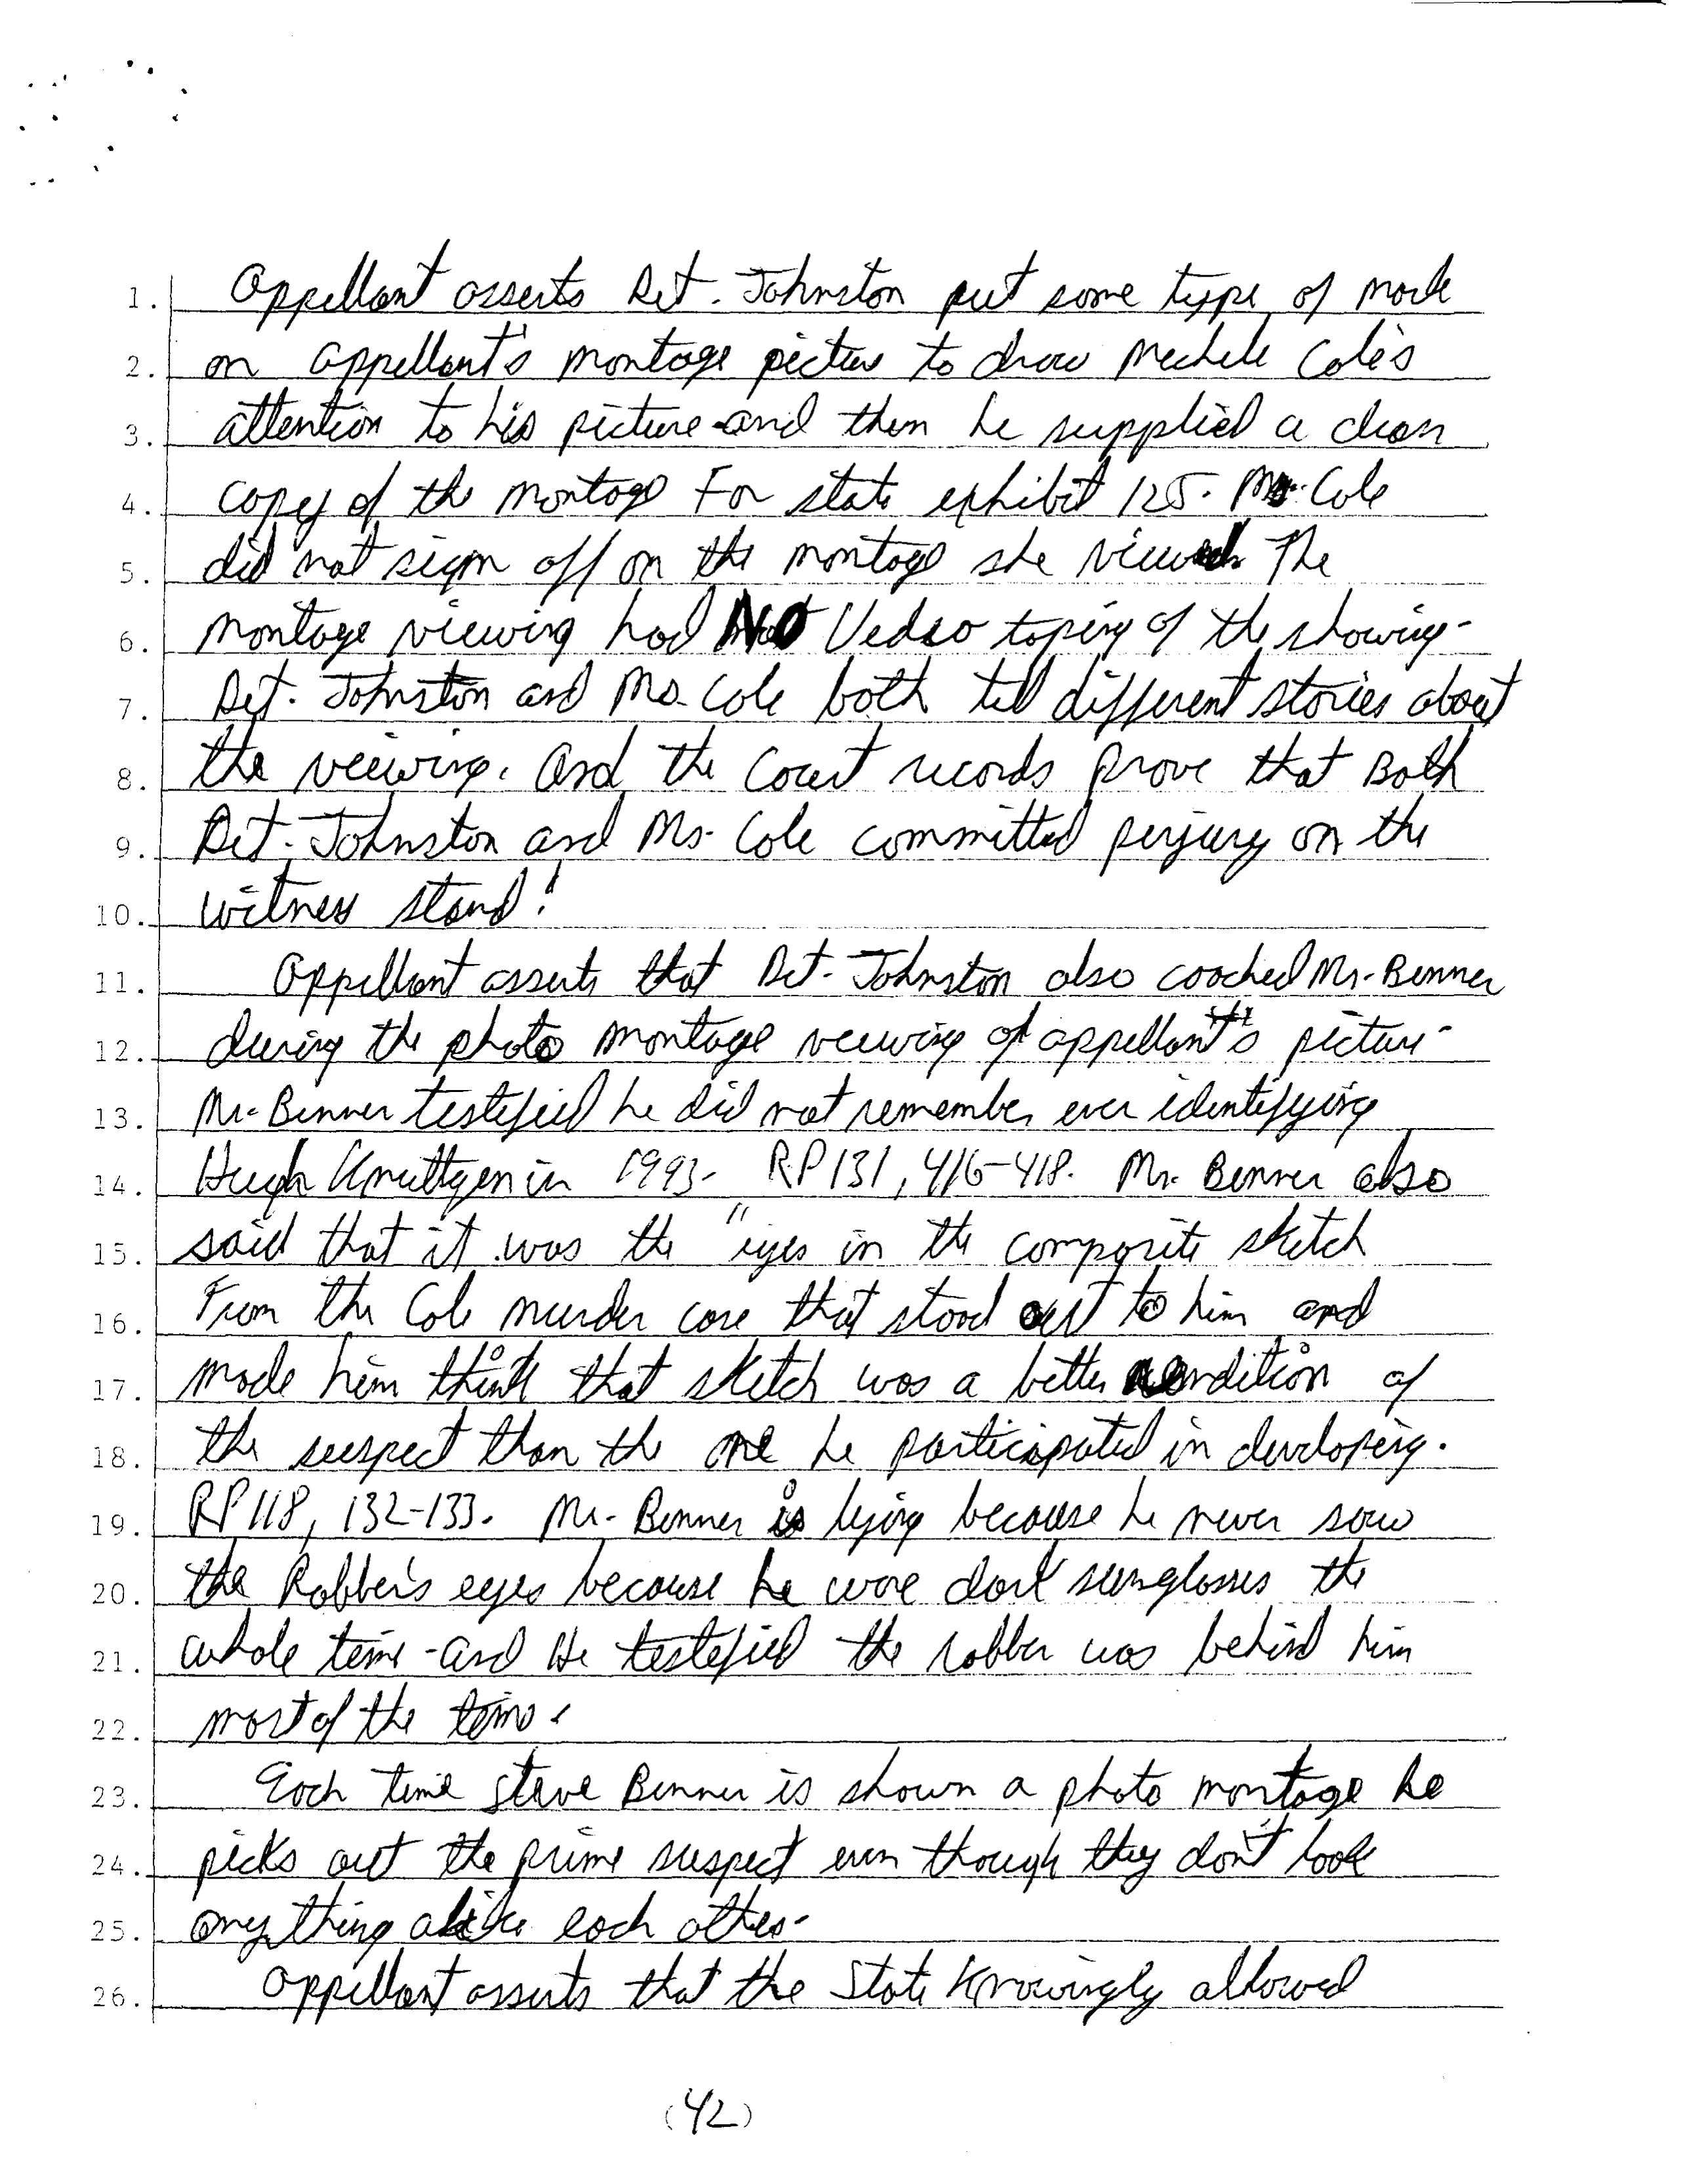 1. Appellant asserts Det. Johnston put some type of mark
2. on appellant's montage picture to draw Mechele Cole's
3. attention to his picture - and then he supplied a clean
4. copy of the montage For state exhibit 125. Ms. Cole
5. did not sign off on the montage she viewed. The
6. montage viewing had NO Vedio toping of the showing-
7. Det. Johnston and Ms. Cole both tell different stories about
8. the viewing. And the Court records prove that Both
9. Det. Johnston and Ms. Cole committed perjury on the
10. witness stand!
11. Appellant asserts that Det. Johnston also coached Mr. Benner
12. during the photo montage viewing of appellant's picture-
13. Mr. Benner testified he did not remember ever identifying
14. Hugh Knuttgen in 1993. RP 131, 416-418. Mr. Benner also
15. said that it was the "eyes in the composite sketch
16. From the Cole murder case that stood out to him and
17. made him think that sketch was a better rendition of
18. the suspect than the one he participated in developing.
19. RP 118, 132-133. Mr. Benner is lying because he never saw
20. the Robber's eyes because he wore dark sunglasses the
21. whole time - and He testified the robber was behind him
22. most of the time.
23. Each time Steve Benner is shown a photo montage he
24. picks out the prime suspect even though they don't look
25. anything alike each other-
26. Appellant asserts that the State Knowingly allowed
(42)